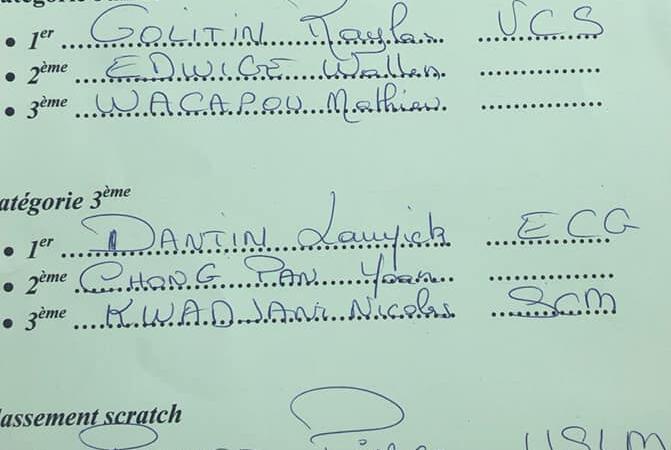 • 1er GOLITIN Kaylas VCS
• 2ème EDWIGE Wallen
• 3ème WACAPOU Mathieu
atégorie 3ème
• 1er DANTIN Lauyick ECG
• 2ème CHONG PAN Yoan
• 3ème KWADJANI Nicolas SCM
lassement scratch
USLM